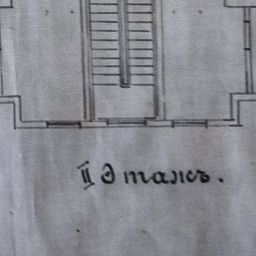 II Этажъ.